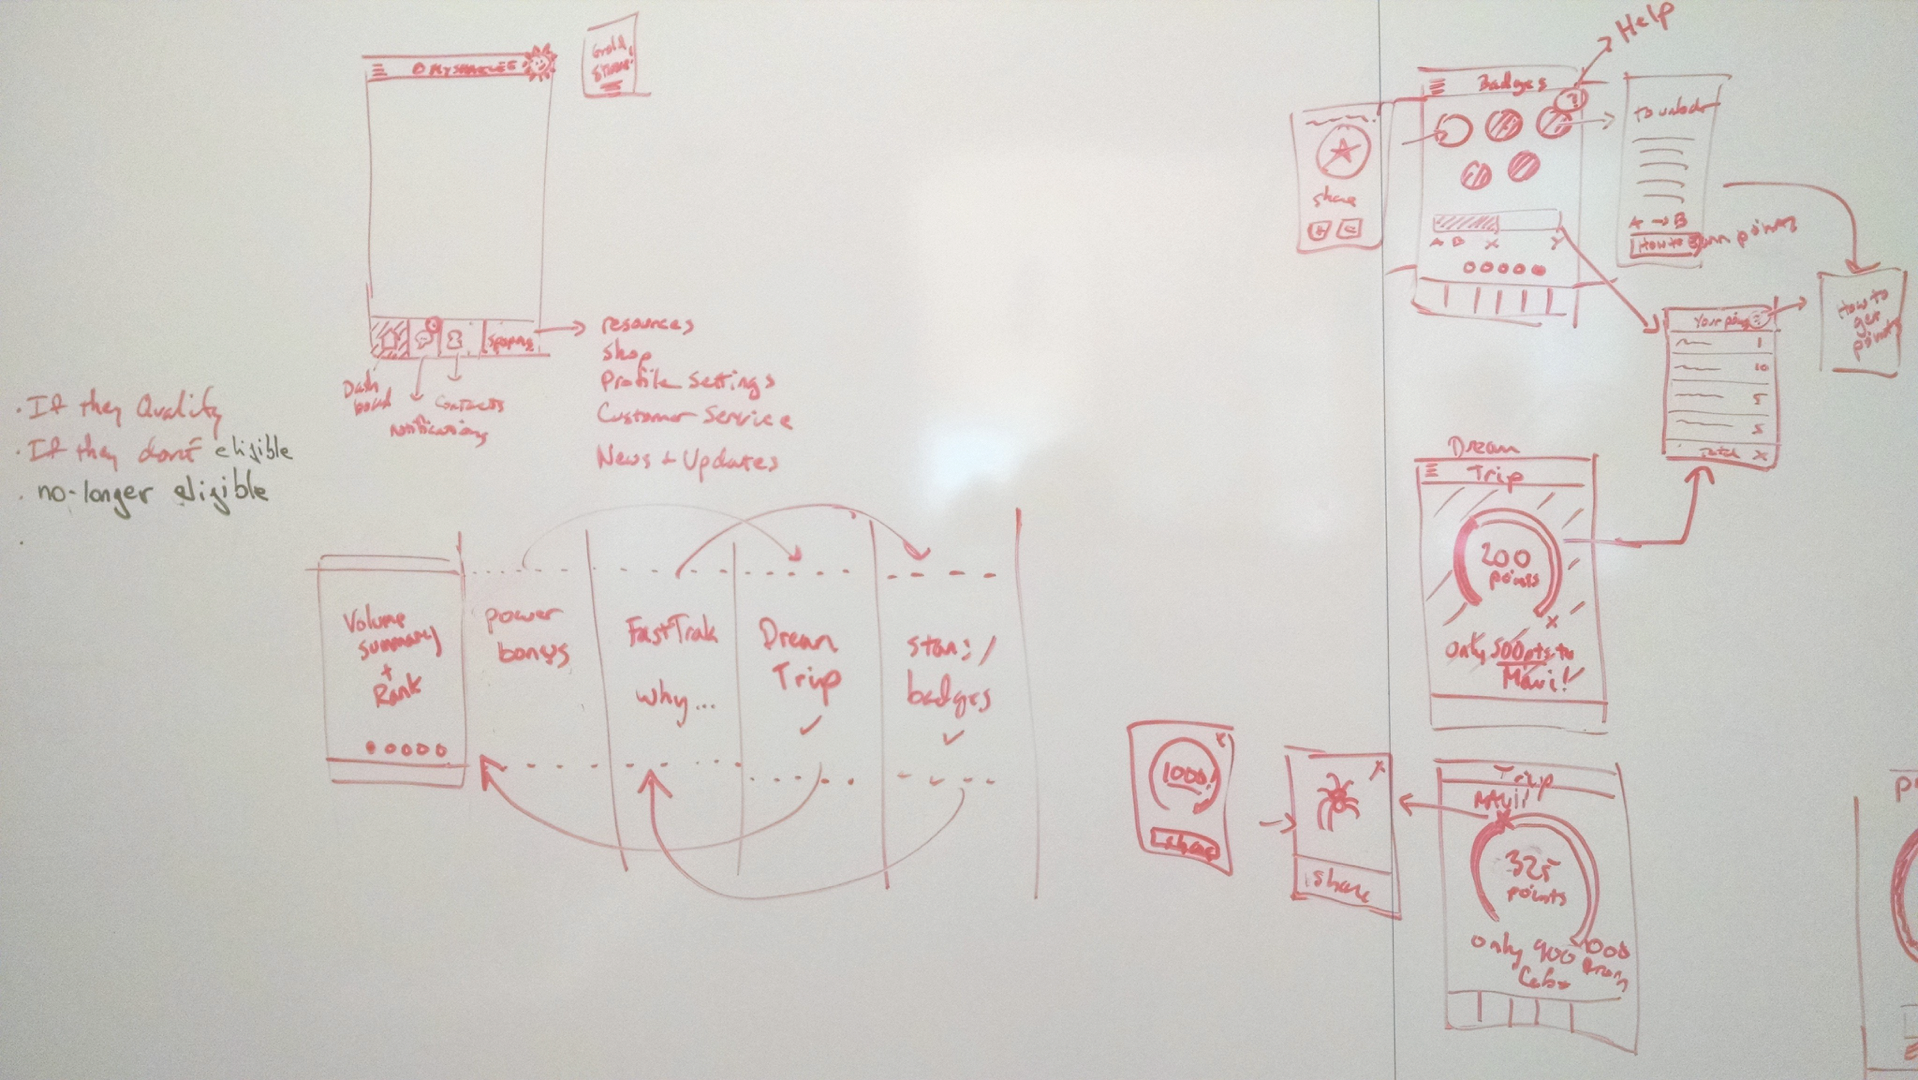 Help
Badges
to unlock
share
A B X Y
A → B
How to earn points
How to
get
points
1
10
5
5
X
resources
Shop
Profile Settings
Customer Service
News + Updates
Dash
board
Contacts
Notifications
· If they Qualify
· If they don't eligible
· no-longer eligible
Volume
summary
+
Rank
power
bonus
FastTrak
why...
Dream
Trip
✓
stars/
badges
✓
Dream
Trip
200
points
X
only 500pts to
Maui!
1000!
X
share
X
share
Trip
MAUI!
X
325
points
1000
only 900 from
Cabo